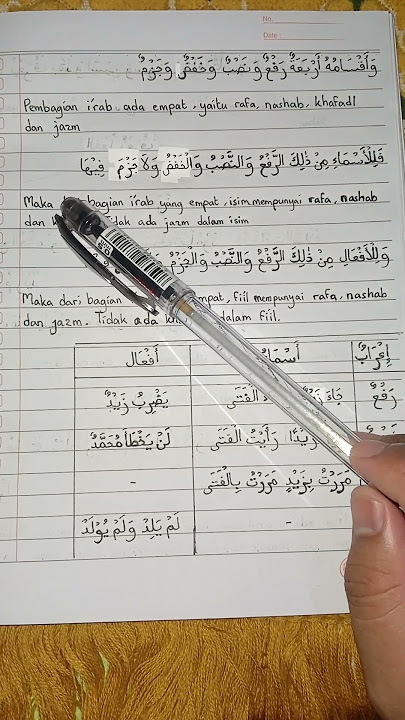 No.
Date :
وَأَقْسَامُهُ أَرْبَعَةٌ رَفْعٌ وَنَصْبٌ وَخَفْضٌ وَجَزْمٌ
Pembagian i'rab ada empat, yaitu rafa, nashab, khafadl
dan jazm
فَلِلْأَسْمَاءِ مِنْ ذَلِكَ الرَّفْعُ وَالنَّصْبُ وَالْخَفْضُ وَلَا جَزْمَ فِيْهَا
Maka bagian i'rab yang empat, isim mempunyai rafa, nashab
dan tidak ada jazm dalam isim
وَلِلْأَفْعَالِ مِنْ ذَلِكَ الرَّفْعُ وَالنَّصْبُ وَالْجَزْمُ
Maka dari bagian empat, fiil mempunyai rafa, nashab
dan jazm. Tidak ada dalam fiil.
إِعْرَابٌ أَفْعَال
رَفْعٌ جَاءَ الْفَتَى يَضْرِبُ زَيْدٌ
زَيْدًا رَأَيْتُ الْفَتَى لَنْ يَخْطَأَ مُحَمَّدٌ
مَرَرْتُ بِزَيْدٍ مَرَرْتُ بِالْفَتَى -
- لَمْ يَلِدْ وَلَمْ يُوْلَدْ